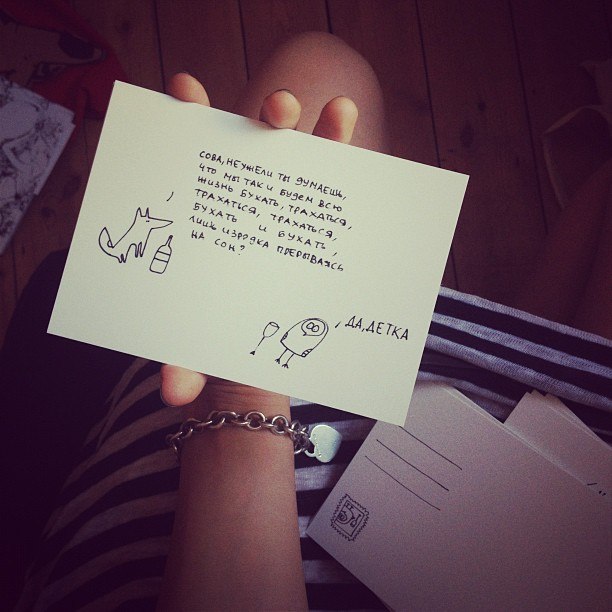 СОВА, НЕУЖЕЛИ ТЫ ДУМАЕШЬ,
ЧТО МЫ ТАК И БУДЕМ ВСЮ
ЖИЗНЬ БУХАТЬ, ТРАХАТЬСЯ,
ТРАХАТЬСЯ, ТРАХАТЬСЯ,
БУХАТЬ И БУХАТЬ,
ЛИШЬ ИЗРЕДКА ПРЕРЫВАЯСЬ
НА СОН?
ДА, ДЕТКА